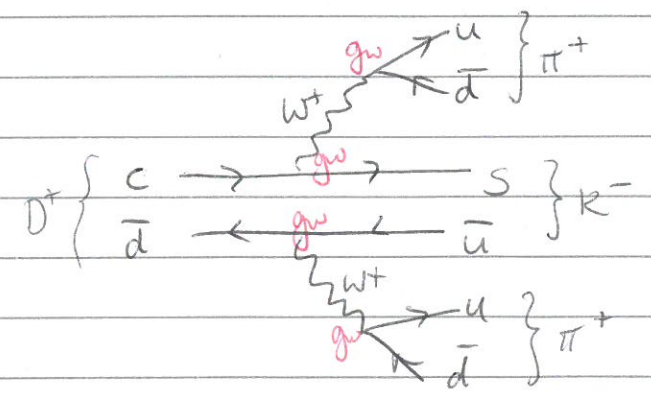 gw u
d̅ } π⁺
W⁺
gw
D⁺ { c s } K⁻
d̅ gw u̅
W⁺
u
gw d̅ } π⁺